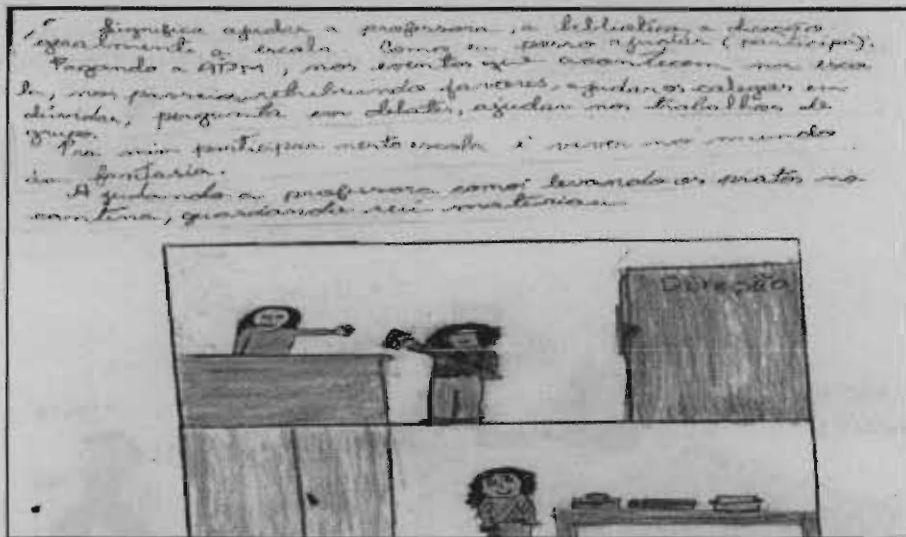 Significa ajudar a professora, a biblioteca a direção
geralmente a escola. Como eu posso ajudar (participa).
Pagando a APM, nos eventos que acontecem na esco
la, nos passeios, retribuindo favores, ajudar os colegas em
dúvidas, pergunta em debates, ajudar nos trabalhos de
grupo.
Pra mim participar nesta escola é viver no mundo
da fantasia.
Ajudando a professora como: levando os pratos na
cantina, guardando seu material
Direção